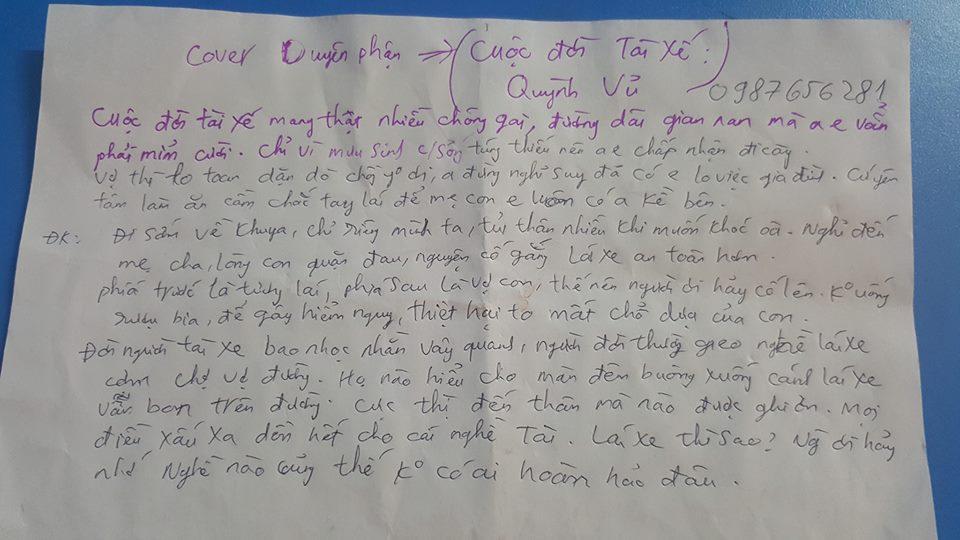 Cover Duyên phận => (Cuộc đời Tài xế:
Quỳnh Vũ) 0987656281
Cuộc đời tài xế mang thật nhiều chông gai, đường dài gian nan mà a e vẫn
phải mỉm cười. Chỉ vì mưu sinh c/sống túng thiếu nên a e chấp nhận đi cày.
Vợ thì lo toan dặn dò chồng yº dị, a đừng nghỉ suy đã có e lo việc gia đình. Cứ yên
tâm làm ăn cầm chắc tay lái để mẹ con e luôn có a kề bên.
ĐK: Đi sớm về khuya, chỉ riêng mình ta, tủi thân nhiều khi muốn khóc oà. Nghỉ đến
mẹ cha, lòng con quặn đau, nguyện cố gắng lái xe an toàn hơn.
phía trước là tương lai, phía sau là vợ con, thế nên người ơi hãy cố lên. Kº uống
rượu bia, để gây hiểm nguy, thiệt hại to mất chỗ dựa của con.
Đời người tài xe bao nhọc nhằn vây quanh, người đời thường gieo nghề lái xe
cơm chợ vợ đường. Họ nào hiểu cho màn đêm buông xuống cánh lái xe
vẫn bon trên đường. Cực thì đến thân mà nào được ghi ơn. Mọi
điều xấu xa dồn hết cho cái nghề Tài. Lái xe thì sao? Ng ơi hãy
nhớ Nghề nào cũng thế Kº có ai hoàn hảo đâu.